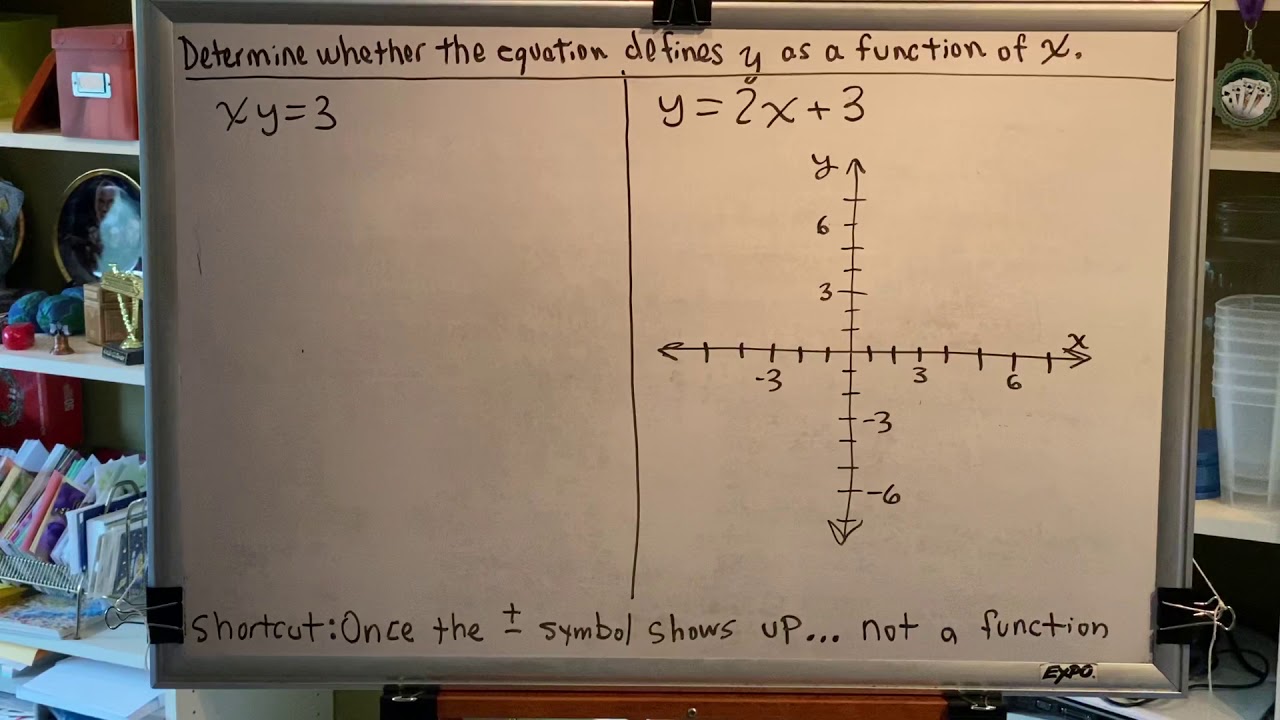 Determine whether the equation defines y as a function of x.
xy=3
y=2x+3
y
6
3
x
-3
3
6
-3
-6
Shortcut: Once the ± symbol shows up... not a function
EXPO